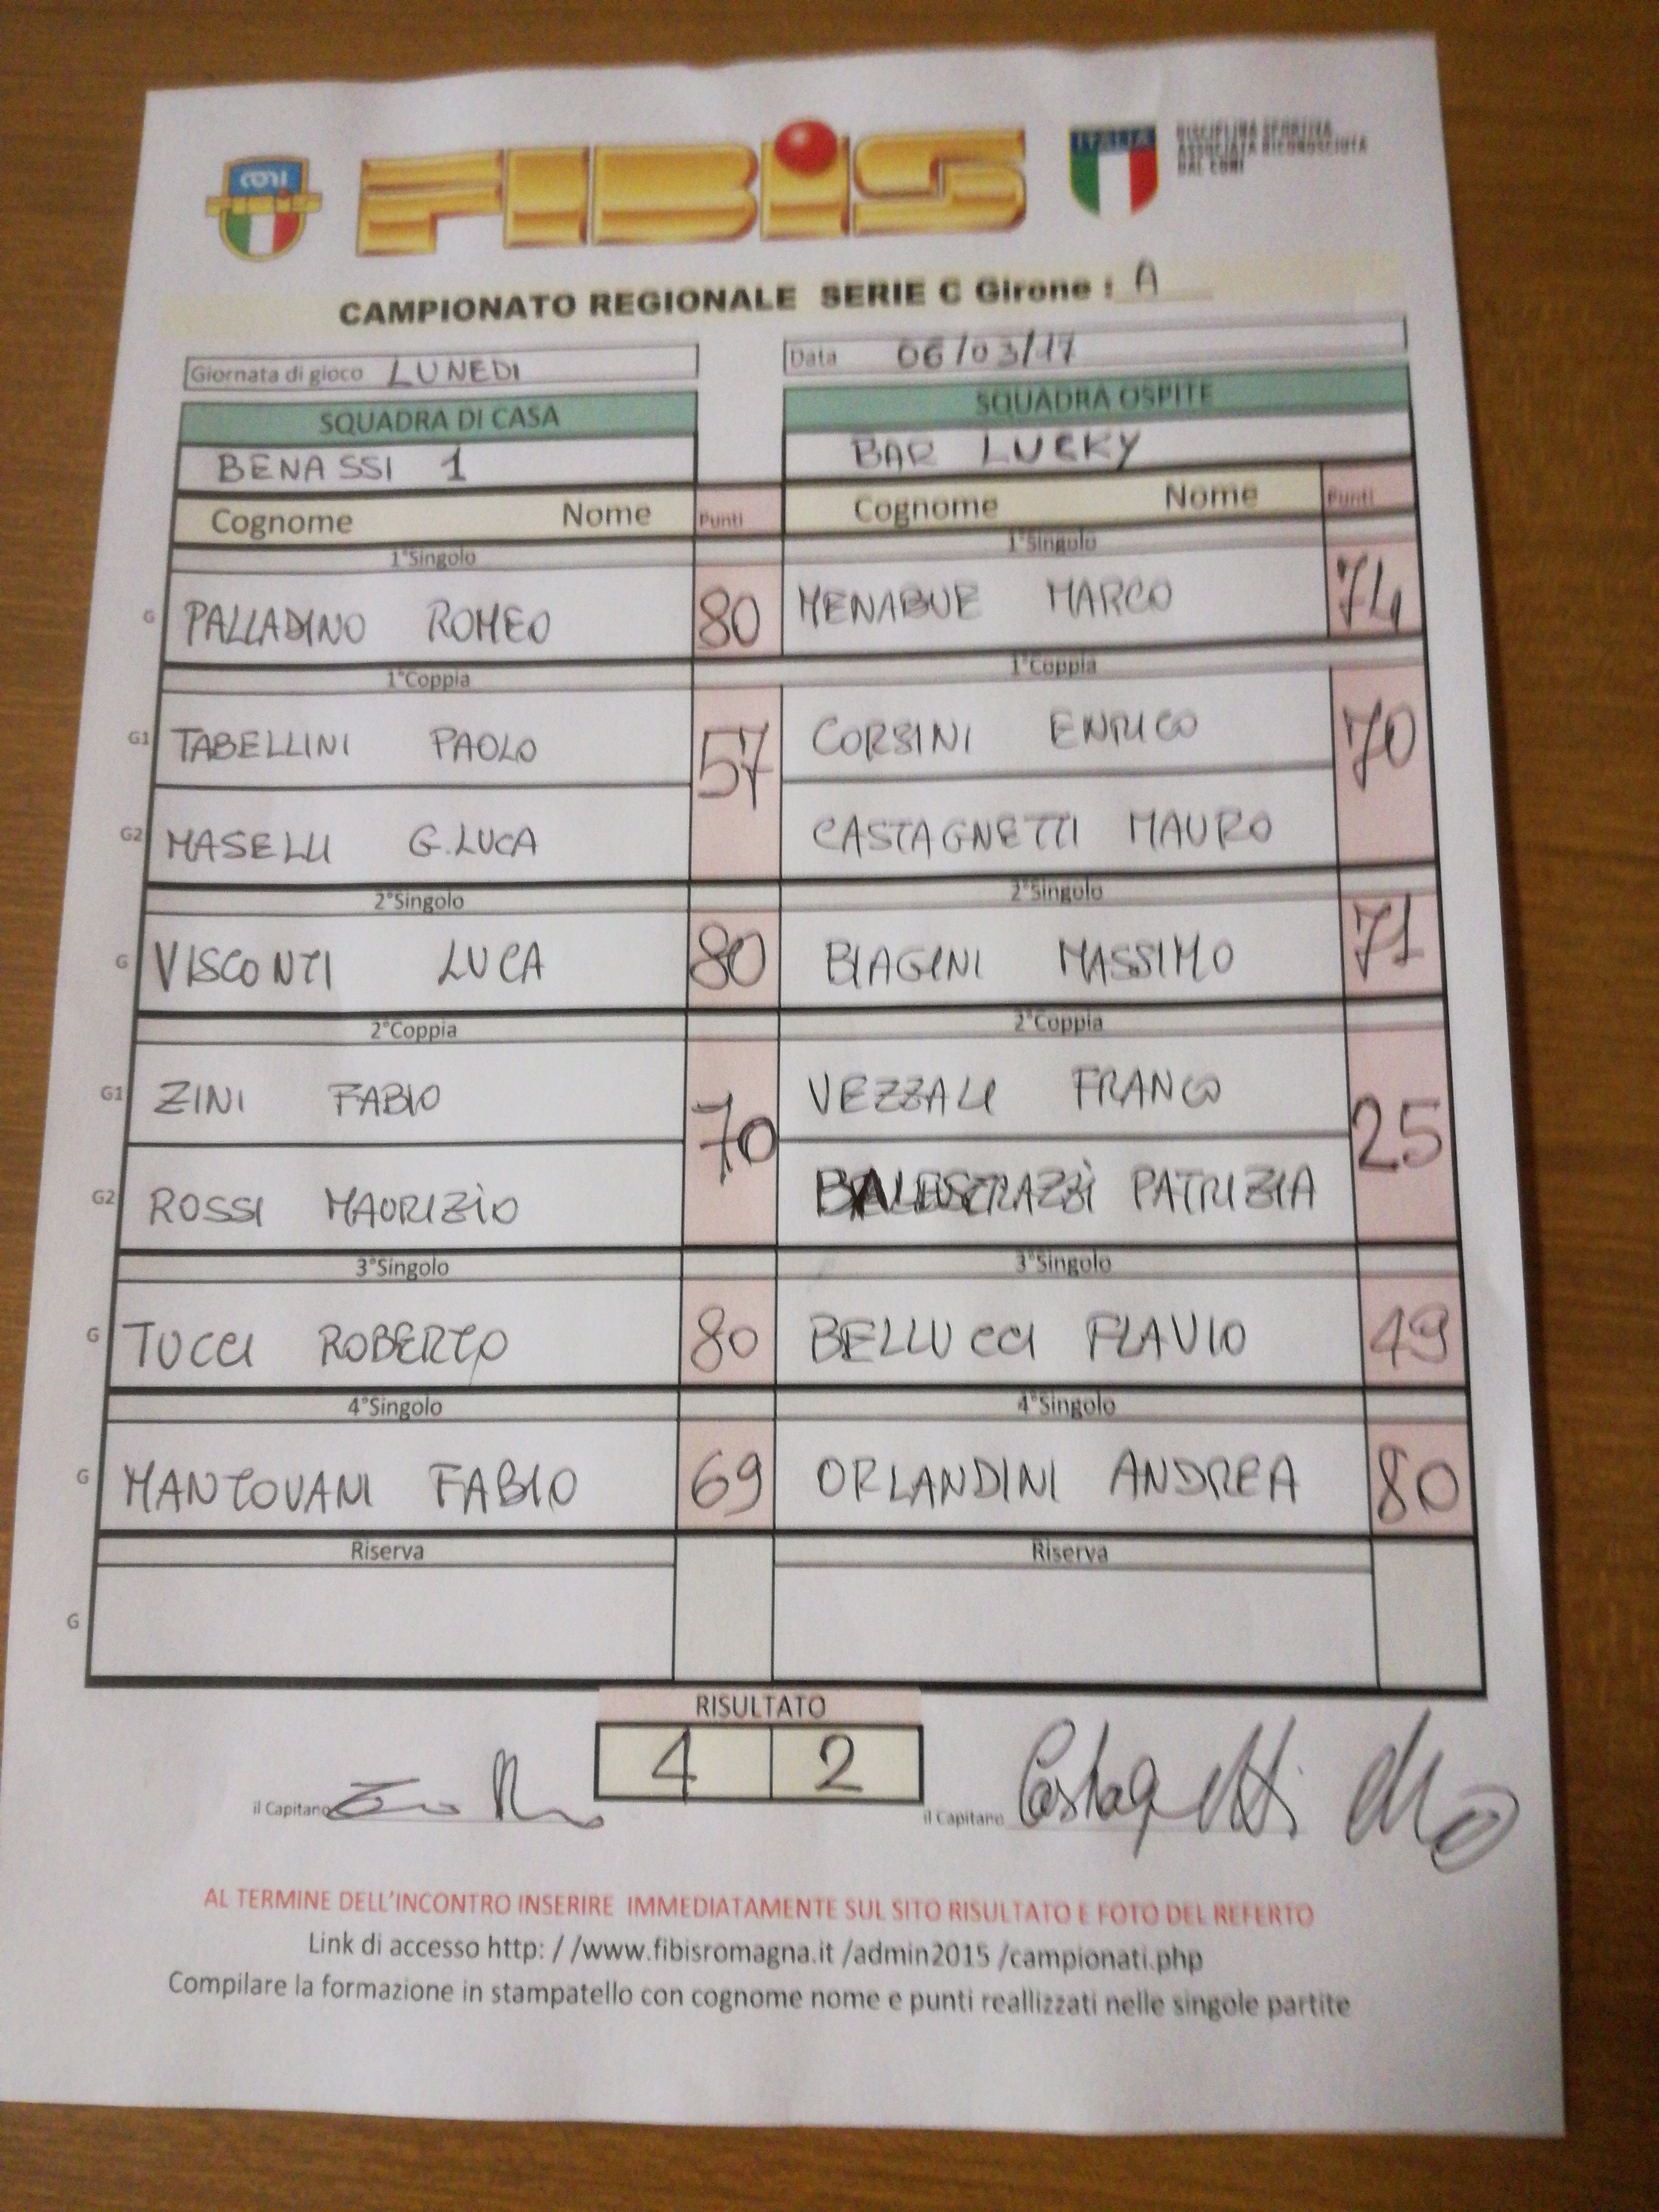 CONI
FIBIS
ITALIA
DISCIPLINA SPORTIVA
ASSOCIATA RICONOSCIUTA
DAL CONI
CAMPIONATO REGIONALE SERIE C Girone : A
Giornata di gioco LUNEDI Data 06/03/17
SQUADRA DI CASA SQUADRA OSPITE
BENASSI 1 BAR LUCKY
Cognome Nome Punti Cognome Nome Punti
1°Singolo 1°Singolo
G PALLADINO ROMEO 80 MENABUE MARCO 74
1°Coppia 1°Coppia
G1 TABELLINI PAOLO 57 CORSINI ENRICO 70
G2 MASELLI G.LUCA CASTAGNETTI MAURO
2°Singolo 2°Singolo
G VISCONTI LUCA 80 BIAGINI MASSIMO 71
2°Coppia 2°Coppia
G1 ZINI FABIO 70 VEZZALI FRANCO 25
G2 ROSSI MAURIZIO PATRIZIA
3°Singolo 3°Singolo
G TUCCI ROBERTO 80 BELLUCCI FLAVIO 49
4°Singolo 4°Singolo
G MANTOVANI FABIO 69 ORLANDINI ANDREA 80
Riserva Riserva
G
RISULTATO
4 2
il Capitano il Capitano Castagnetti
AL TERMINE DELL'INCONTRO INSERIRE IMMEDIATAMENTE SUL SITO RISULTATO E FOTO DEL REFERTO
Link di accesso http: / /www.fibisromagna.it /admin2015 /campionati.php
Compilare la formazione in stampatello con cognome nome e punti reallizzati nelle singole partite